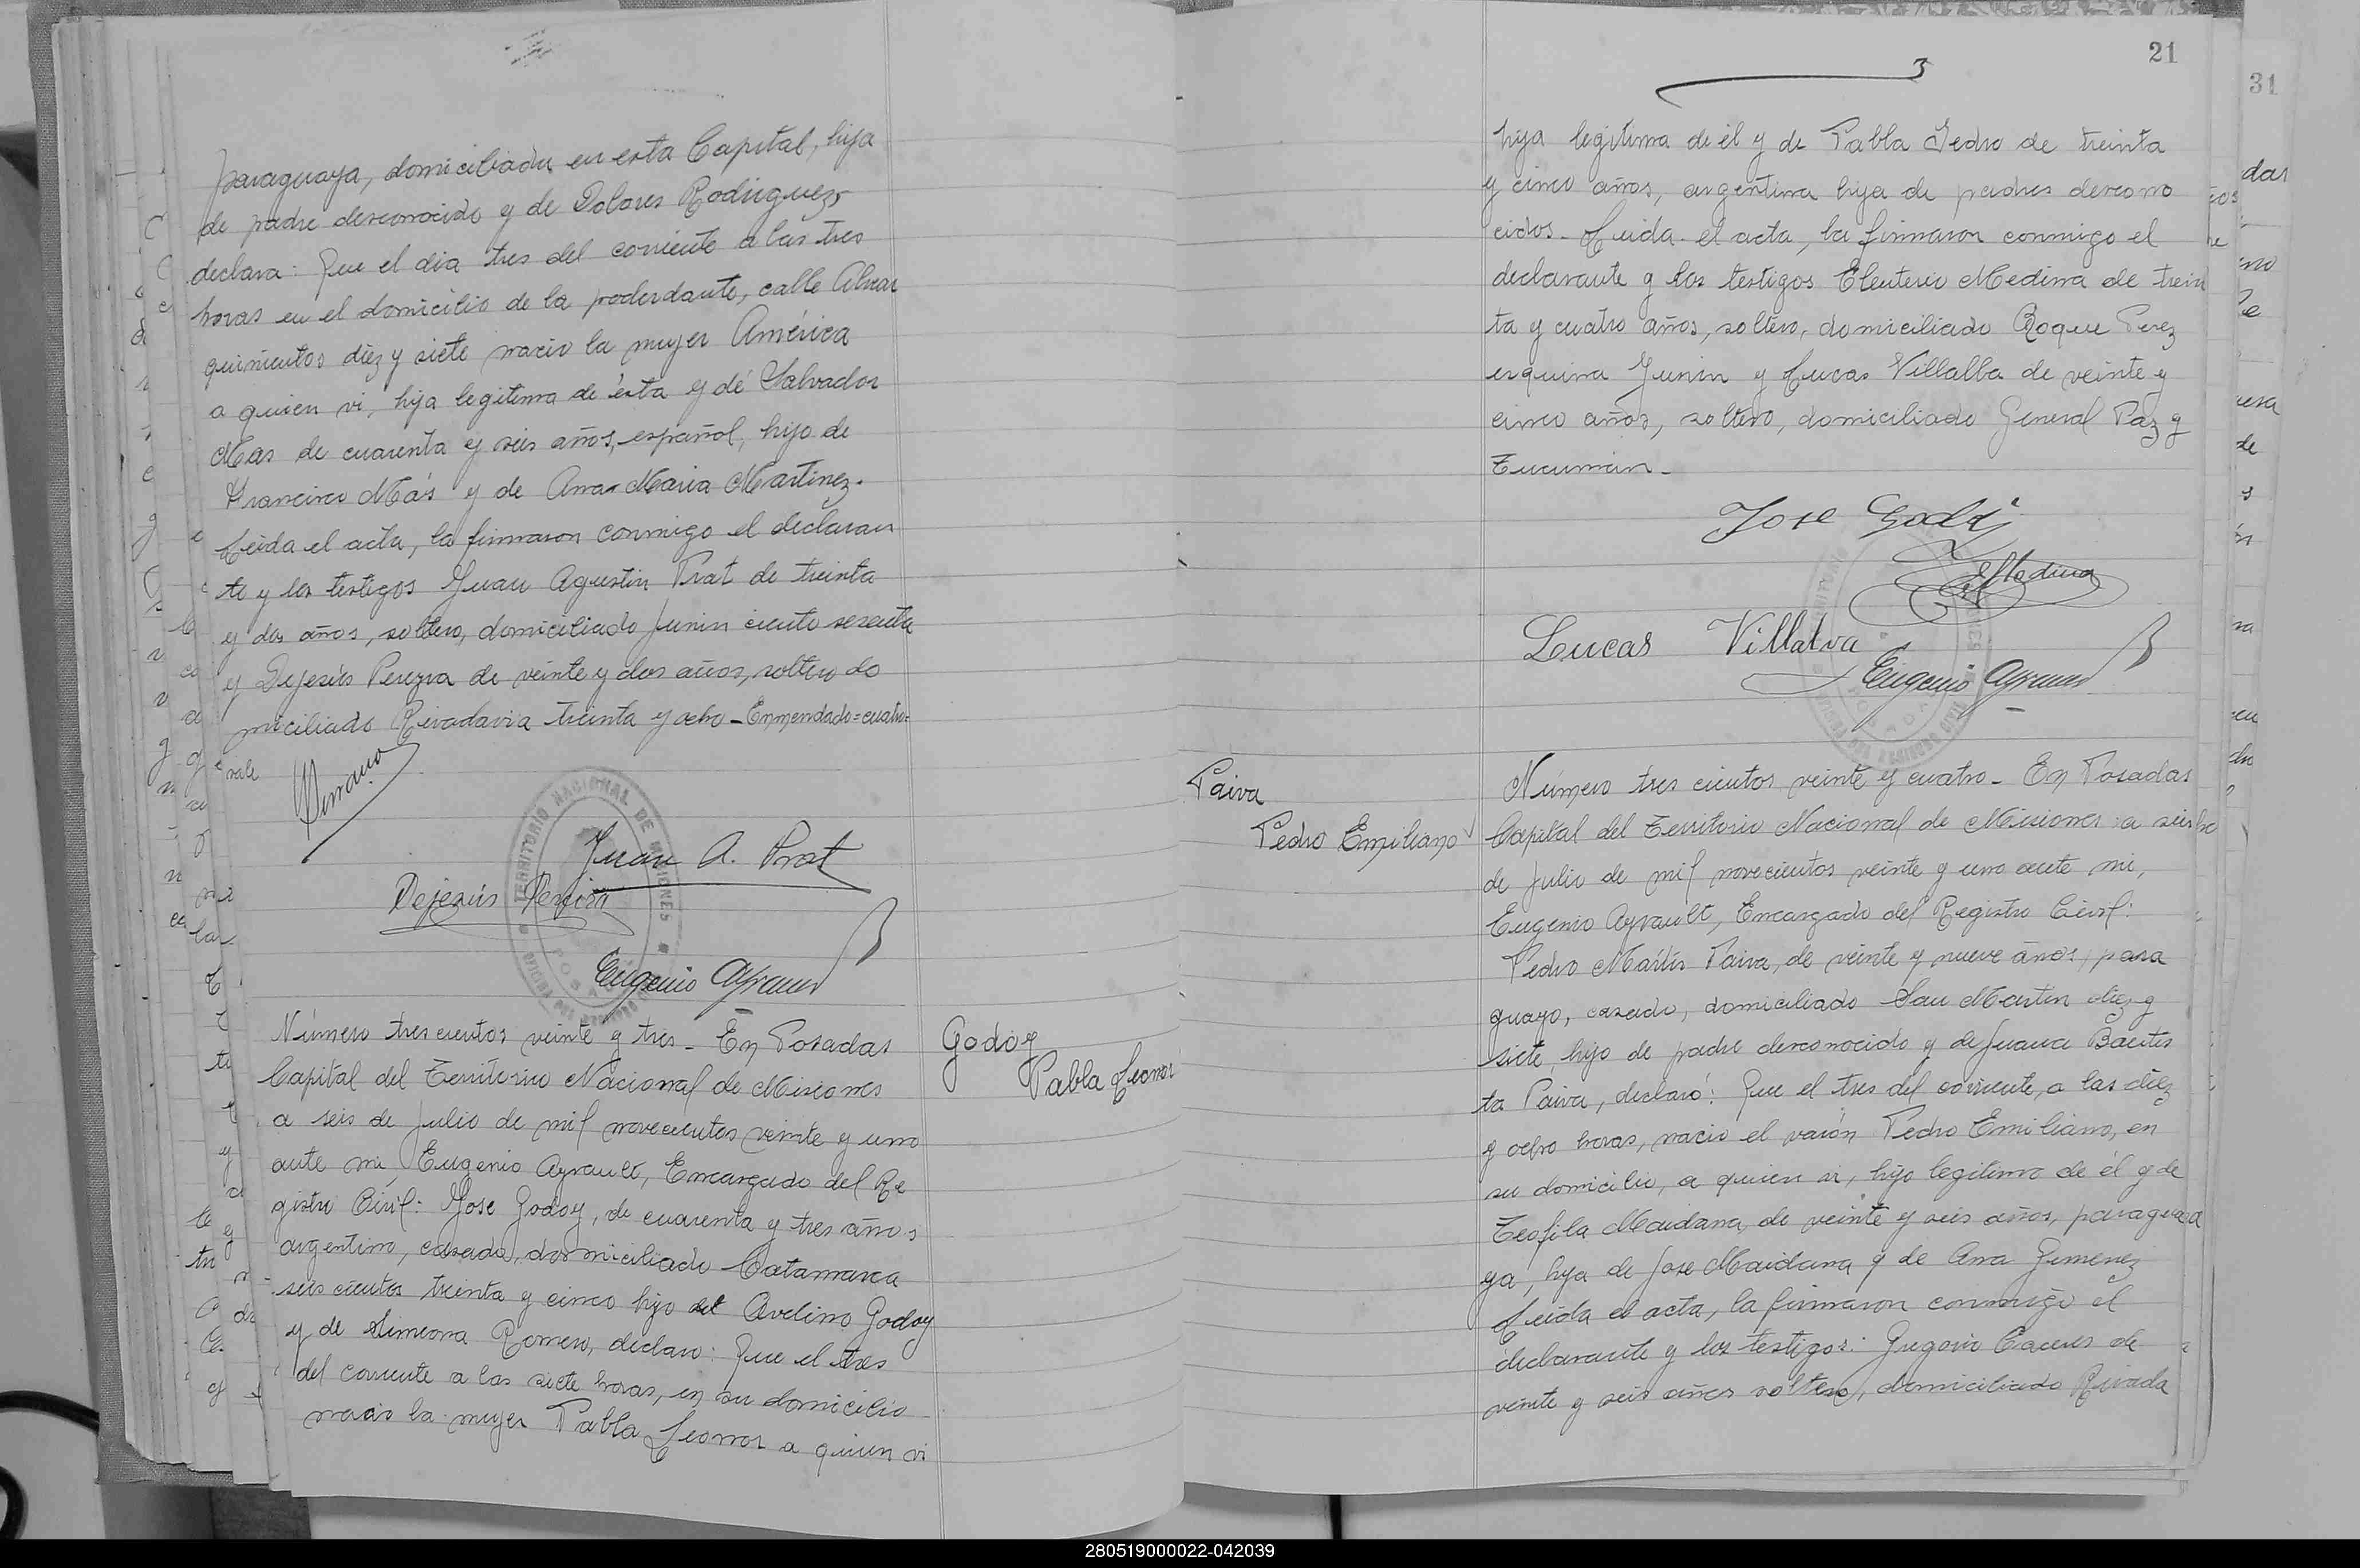 paraguaya, domiciliada en esta Capital, hija
de padre desconocido y de Dolores Rodriguez,
declara: Que el dia tres del corriente a las tres
horas en el domicilio de la poderdante, calle Alvear
quinientos diez y siete nacio la mujer América
a quien vi, hija legitima de ésta y de Salvador
Mas de cuarenta y seis años, español, hijo de
Francisco Más y de Ana Maria Martinez.
Leida el acta, la firmaron conmigo el declaran
te y los testigos Juan Agustin Prat de treinta
y dos años, soltero, domiciliado Junin ciento sesenta
y Dejesús Pereyra de veinte y dos años, soltero do
miciliado Rivadavia treinta y ocho - Enmendado=cuatro=
vale
Serrano
Juan A. Prat
Dejesús Pereira
TERRITORIO NACIONAL DE MISIONES
Eugenio Ayrault
Número tres cientos veinte y tres - En Posadas
Capital del Territorio Nacional de Misiones
a seis de Julio de mil novecientos veinte y uno
ante mi, Eugenio Ayrault, Encargado del Re
gistro Civil: Jose Godoy, de cuarenta y tres años
argentino, casado, domiciliado Catamarca
seis cientos treinta y cinco hijo de Avelino Godoy
y de Simeona Romero, declaro: Que el tres
del corriente a las siete horas, en su domicilio
nacio la mujer Pabla Leonor a quien vi
Godoy
Pabla Leonor
3
21
31
hija legitima de él y de Pabla Pedro de treinta
y cinco años, argentina hija de padres descono
cidos - Leida el acta, la firmaron conmigo el
declarante y los testigos Eleuterio Medina de trein
ta y cuatro años, soltero, domiciliado Roque Perez
esquina Junin y Lucas Villalba de veinte y
cinco años, soltero, domiciliado General Paz y
Tucumán -
Jose Godoy
EMedina
Lucas Villalva
Eugenio Ayrault
Paiva
Pedro Emiliano
Número tres cientos veinte y cuatro - En Posadas
Capital del Territorio Nacional de Misiones a siete
de Julio de mil novecientos veinte y uno ante mi,
Eugenio Ayrault, Encargado del Registro Civil:
Pedro Mártir Paiva, de veinte y nueve años, para
guayo, casado, domiciliado San Martin diez y
siete, hijo de padre desconocido y de Juana Bautis
ta Paiva, declaró: Que el tres del corriente, a las diez
y ocho horas, nacio el varón Pedro Emiliano, en
su domicilio, a quien vi, hijo legitimo de él y de
Teofila Maidana, de veinte y seis años, paragua
ya, hija de Jose Maidana y de Ana Gimenez
Leida el acta, la firmaron conmigo el
declarante y los testigos: Gregorio Caceres de
veinte y seis años soltero, domiciliado Rivada
280519000022-042039